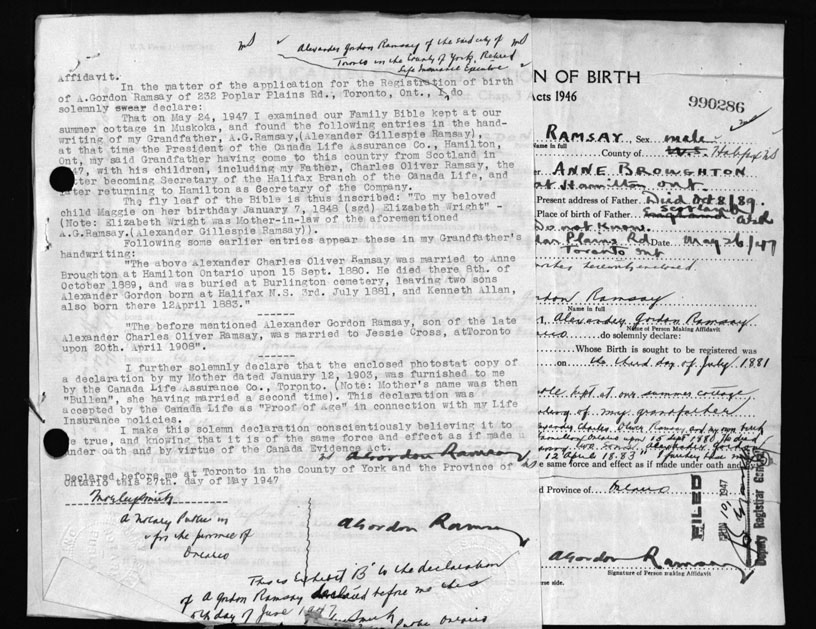 Alexander Gordon Ramsay of the said city of
Toronto in the County of York, Retired
Life Insurance Executive
Affidavit.
In the matter of the application for the Registration of birth
of A.Gordon Ramsay of 232 Poplar Plains Rd., Toronto, Ont., I, do
solemnly swear declare:
That on May 24, 1947 I examined our Family Bible kept at our
summer cottage in Muskoka, and found the following entries in the hand-
writing of my Grandfather, A.G.Ramsay,(Alexander Gillespie Ramsay),
at that time the President of the Canada Life Assurance Co., Hamilton,
Ont, my said Grandfather having come to this country from Scotland in
47, with his children, including my Father, Charles Oliver Ramsay, the
tter becoming Secretary of the Halifax Branch of the Canada Life, and
ter returning to Hamilton as Secretary of the Company.
The fly leaf of the Bible is thus inscribed: "To my beloved
child Maggie on her birthday January 7, 1848 (sgd) Elizabeth Wright" -
(Note: Elizabeth Wright was Mother-in-law of the aforementioned
A.G.Ramsay.(Alexander Gillespie Ramsay)).
Following some earlier entries appear these in my Grandfather's
handwriting:
"The above Alexander Charles Oliver Ramsay was married to Anne
Broughton at Hamilton Ontario upon 15 Sept. 1880. He died there 8th. of
October 1889, and was buried at Burlington cemetery, leaving two sons
Alexander Gordon born at Halifax N.S. 3rd. July 1881, and Kenneth Allan,
also born there 12April 1883."
------
"The before mentioned Alexander Gordon Ramsay, son of the late
Alexander Charles Oliver Ramsay, was married to Jessie Cross, atToronto
upon 20th. April 1908".
------
I further solemnly declare that the enclosed photostat copy of
a declaration by my Mother dated January 12, 1903, was furnished to me
by the Canada Life Assurance Co., Toronto. (Note: Mother's name was then
"Bullen", she having married a second time). This declaration was
accepted by the Canada Life as "Proof of Age" in connection with my Life
Insurance policies.
I make this solemn declaration conscientiously believing it to
be true, and knowing that it is of the same force and effect as if made
under oath and by virtue of the Canada Evidence Act.
AGordon Ramsay
Declared before me at Toronto in the County of York and the Province of
Ontario this 27th. day of May 1947
A Notary Public in
for the province of
Ontario
AGordon Ramsay
This is Exhibit "B" to the declaration
of A Gordon Ramsay declared before me this
day of June 1947
Public Ontario
N OF BIRTH
Acts 1946
990286
RAMSAY Sex male
Name in full
County of Halifax NS
er ANNE BROUGHTON
at Hamilton Ont
Present address of Father Died Oct 8/89
Place of birth of Father Scotland
Do not Know
Plains Rd Date May 26/47
Toronto Ont
herewith enclosed
rdon Ramsay
Name in full
I, Alexander Gordon Ramsay
Name of Person Making Affidavit
do solemnly declare:
Whose Birth is sought to be registered was
on the third day of July 1881
ble kept at our summer cottage
of my grandfather
Charles Oliver Ramsay
Hamilton Ontario upon 15 Sept 1880
12 April 1883"
e same force and effect as if made under oath and by
d Province of Ontario
FILED
1947
Deputy Registrar General
AGordon Ramsay
Signature of Person making Affidavit
rse side.